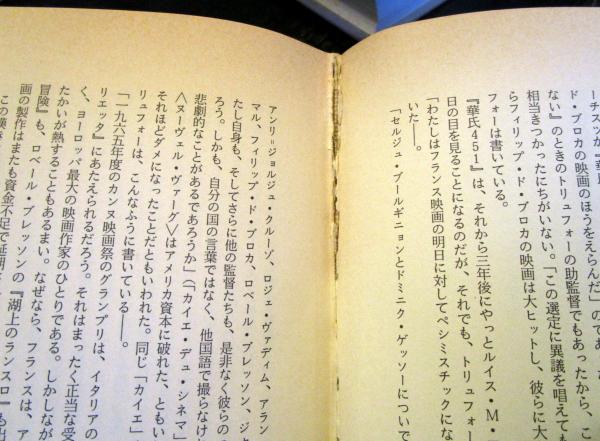 ーチスツが『華氏
ド・ブロカの映画のほうをえらんだ」のであ
ない』のときのトリュフォーの助監督でもあったから、こ
相当きつかったにちがいない。「この選定に異議を唱えても
らフィリップ・ド・ブロカの映画は大ヒットし、彼らに大
フォーは書いている。
『華氏451』は、それから三年後にやっとルイス・M・
日の目を見ることになるのだが、それでも、トリュフォー
「わたしはフランス映画の明日に対してペシミスチックにな
いた――。
「セルジュ・ブールギニョンとドミニク・ゲッソーについて
アンリ=ジョルジュ・クルーゾ、ロジェ・ヴァディム、アラン
マル、フィリップ・ド・ブロカ、ロベール・ブレッソン、ジャ
たし自身も、そしてさらに他の監督たちも、是非なく彼らの
ろう。しかも、自分の国の言葉ではなく、他国語で撮らなけ
悲劇的なことがあるであろうか」(「カイエ・デュ・シネマ」
〈ヌーヴェル・ヴァーグ〉はアメリカ資本に破れた、ともい
それほどダメになったことだともいわれた。同じ「カイエ」
リュフォーは、こんなふうに書いている――。
「一九六五年度のカンヌ映画祭のグランプリは、イタリアの
リエッタ』にあたえられるだろう。それはまったく正当な受
く、ヨーロッパ最大の映画作家のひとりである。しかしなが
たかいが熱することもあるまい。なぜなら、フランスは、ア
冒険』も、ロベール・ブレッソンの『湖上のランスロ』も出
画の製作はまたも資金不足で延期
この嘆き